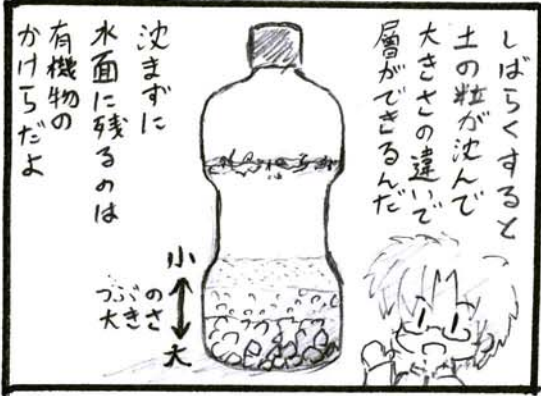 しばらくすると
土の粒が沈んで
大きさの違いで
層ができるんだ
沈まずに
水面に残るのは
有機物の
かけらだよ
小
つぶの
大きさ
大